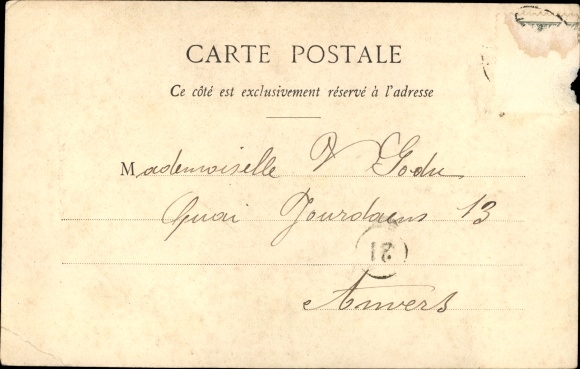 CARTE POSTALE
Ce côté est exclusivement réservé à l'adresse
Mademoiselle V Godu
Quai Jourdaens 13
21
Anvers